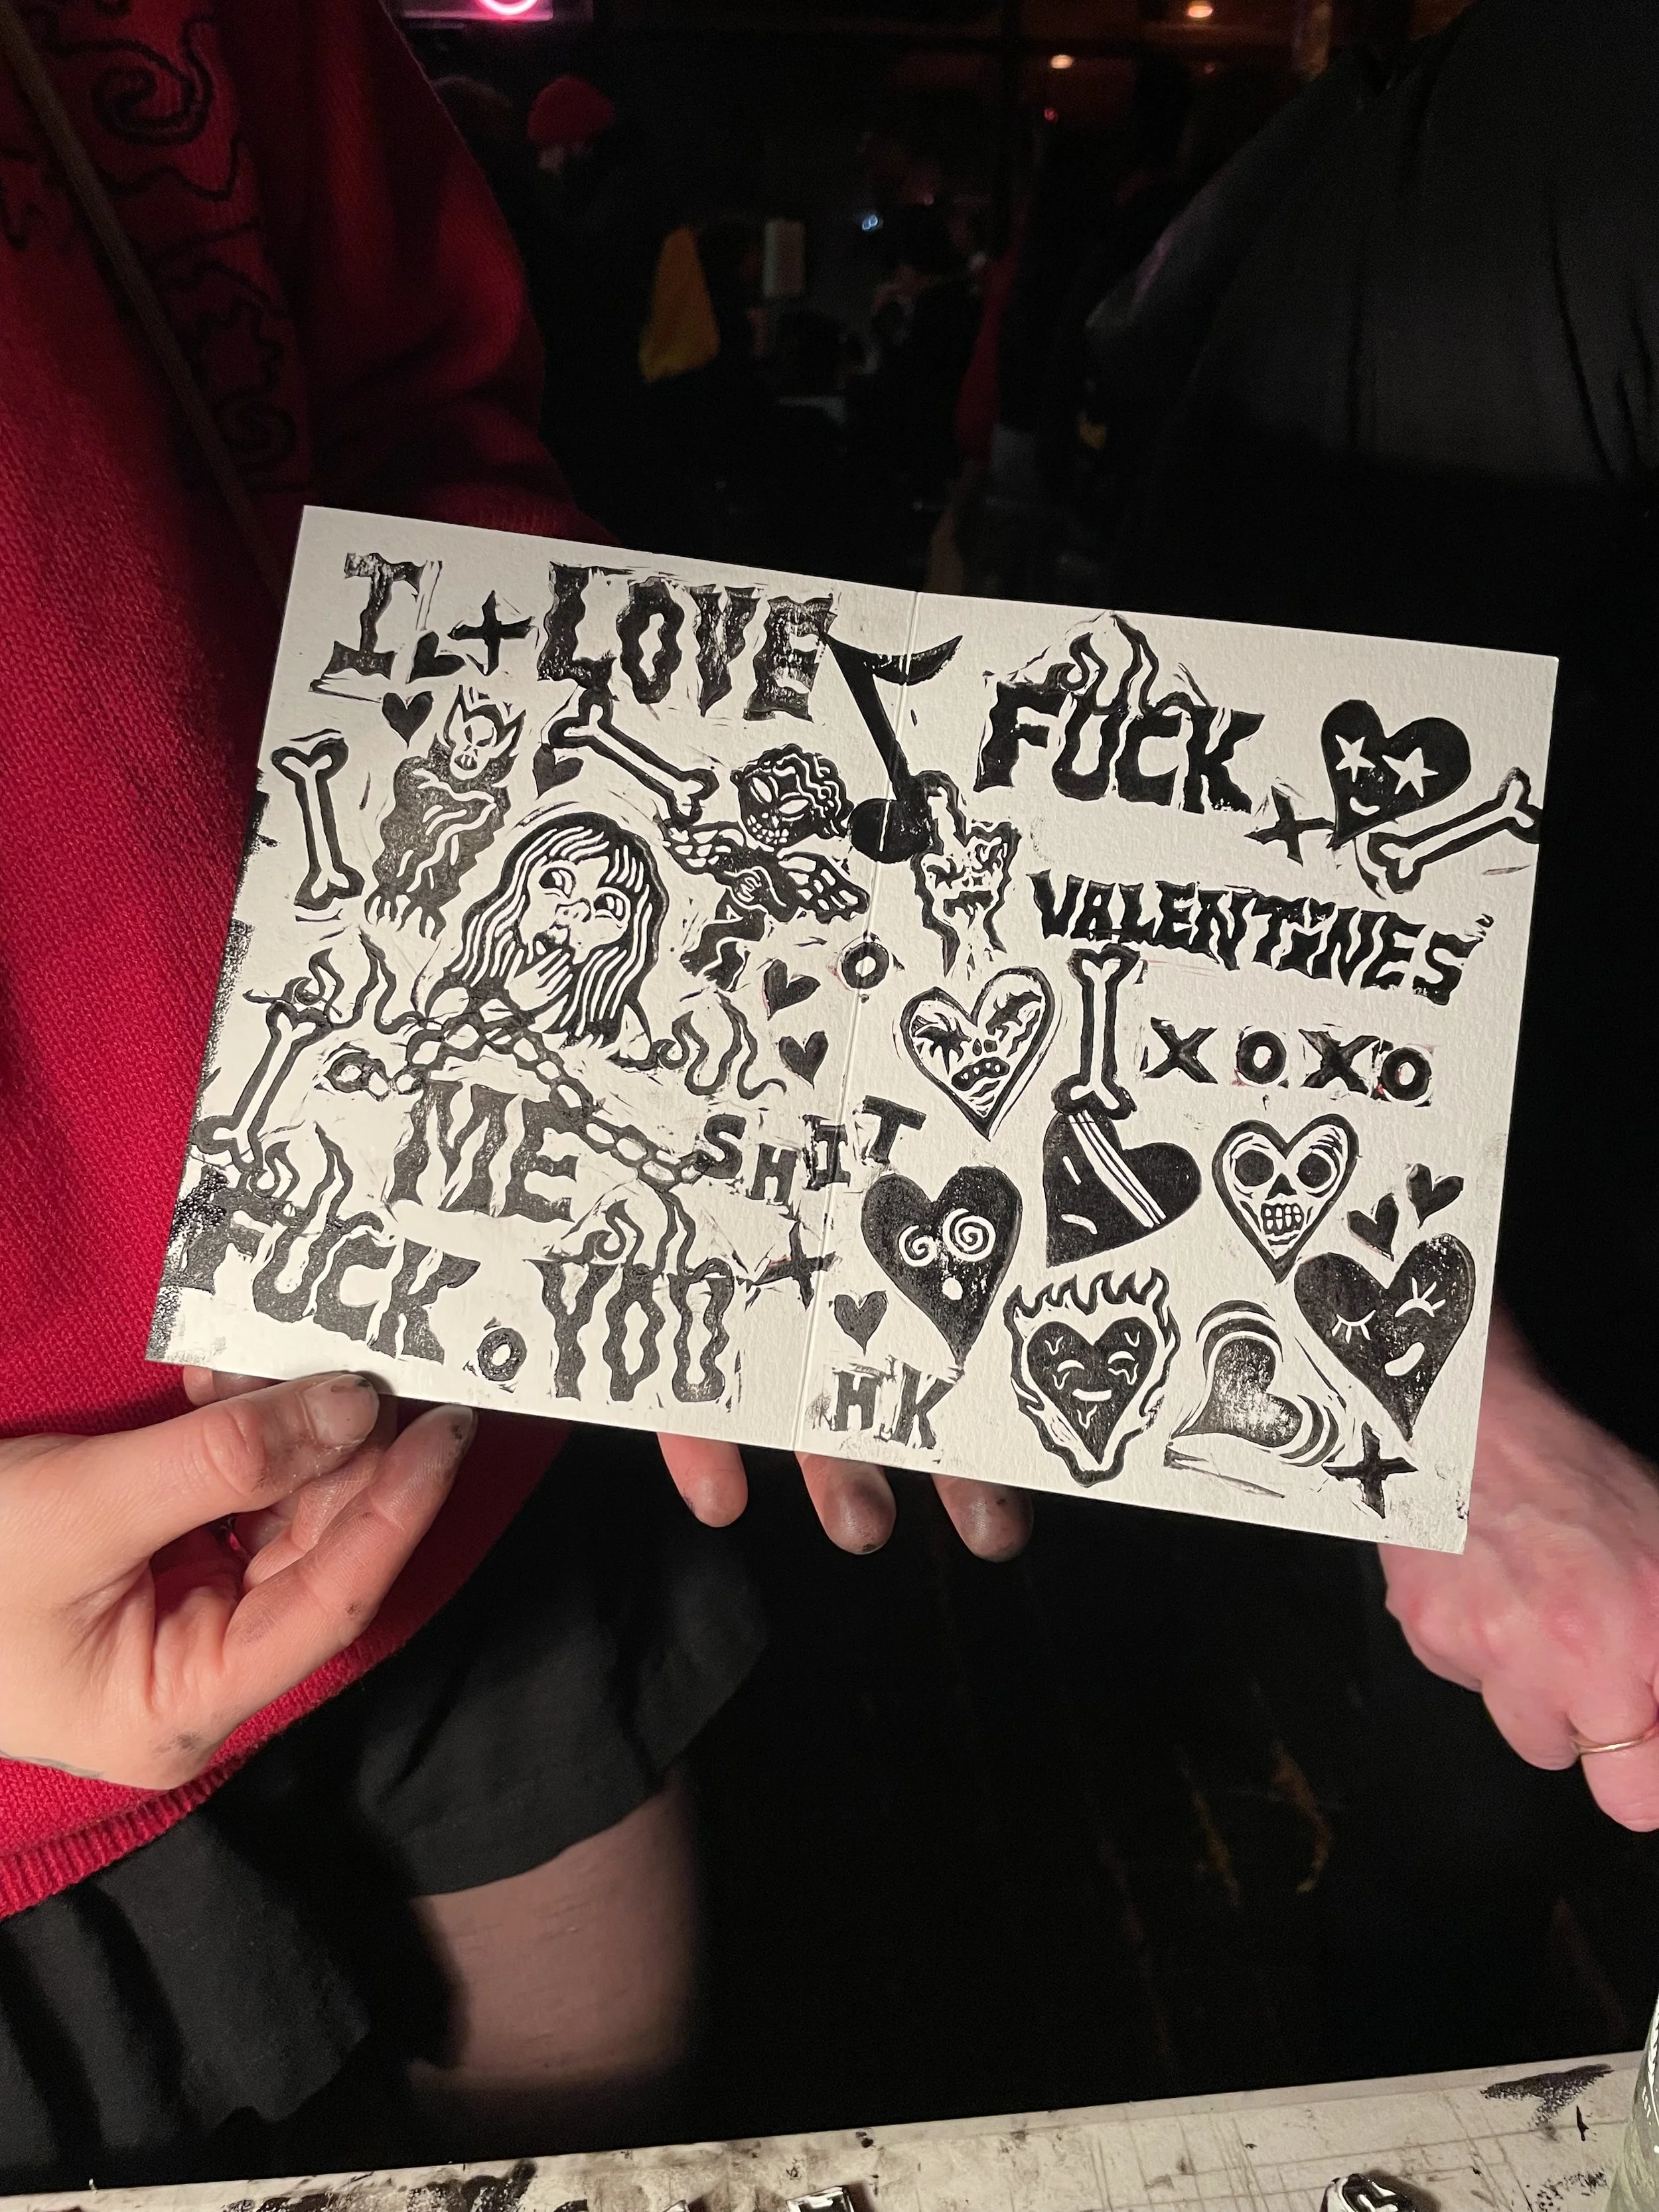 I + LOVE
ME
SHIT
FUCK YOU
FUCK
VALENTINES
XOXO
HK